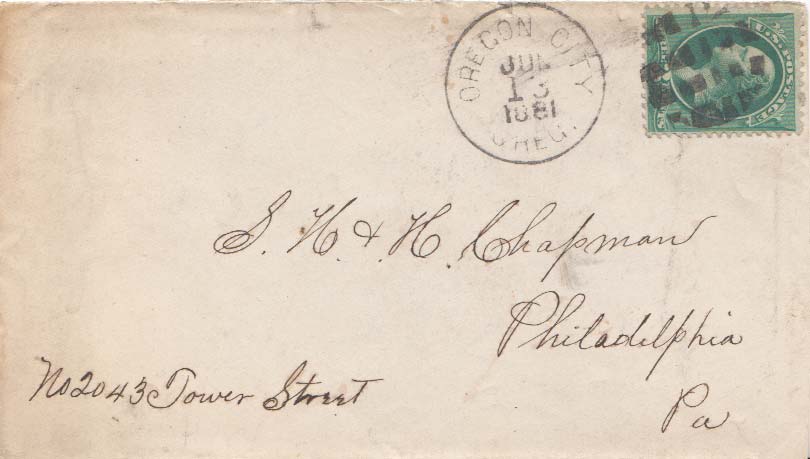 OREGON CITY
JUL
13
1881
OREG.
U.S. POSTAGE
S. H. & H. Chapman
Philadelphia
No 2043 Tower Street
Pa